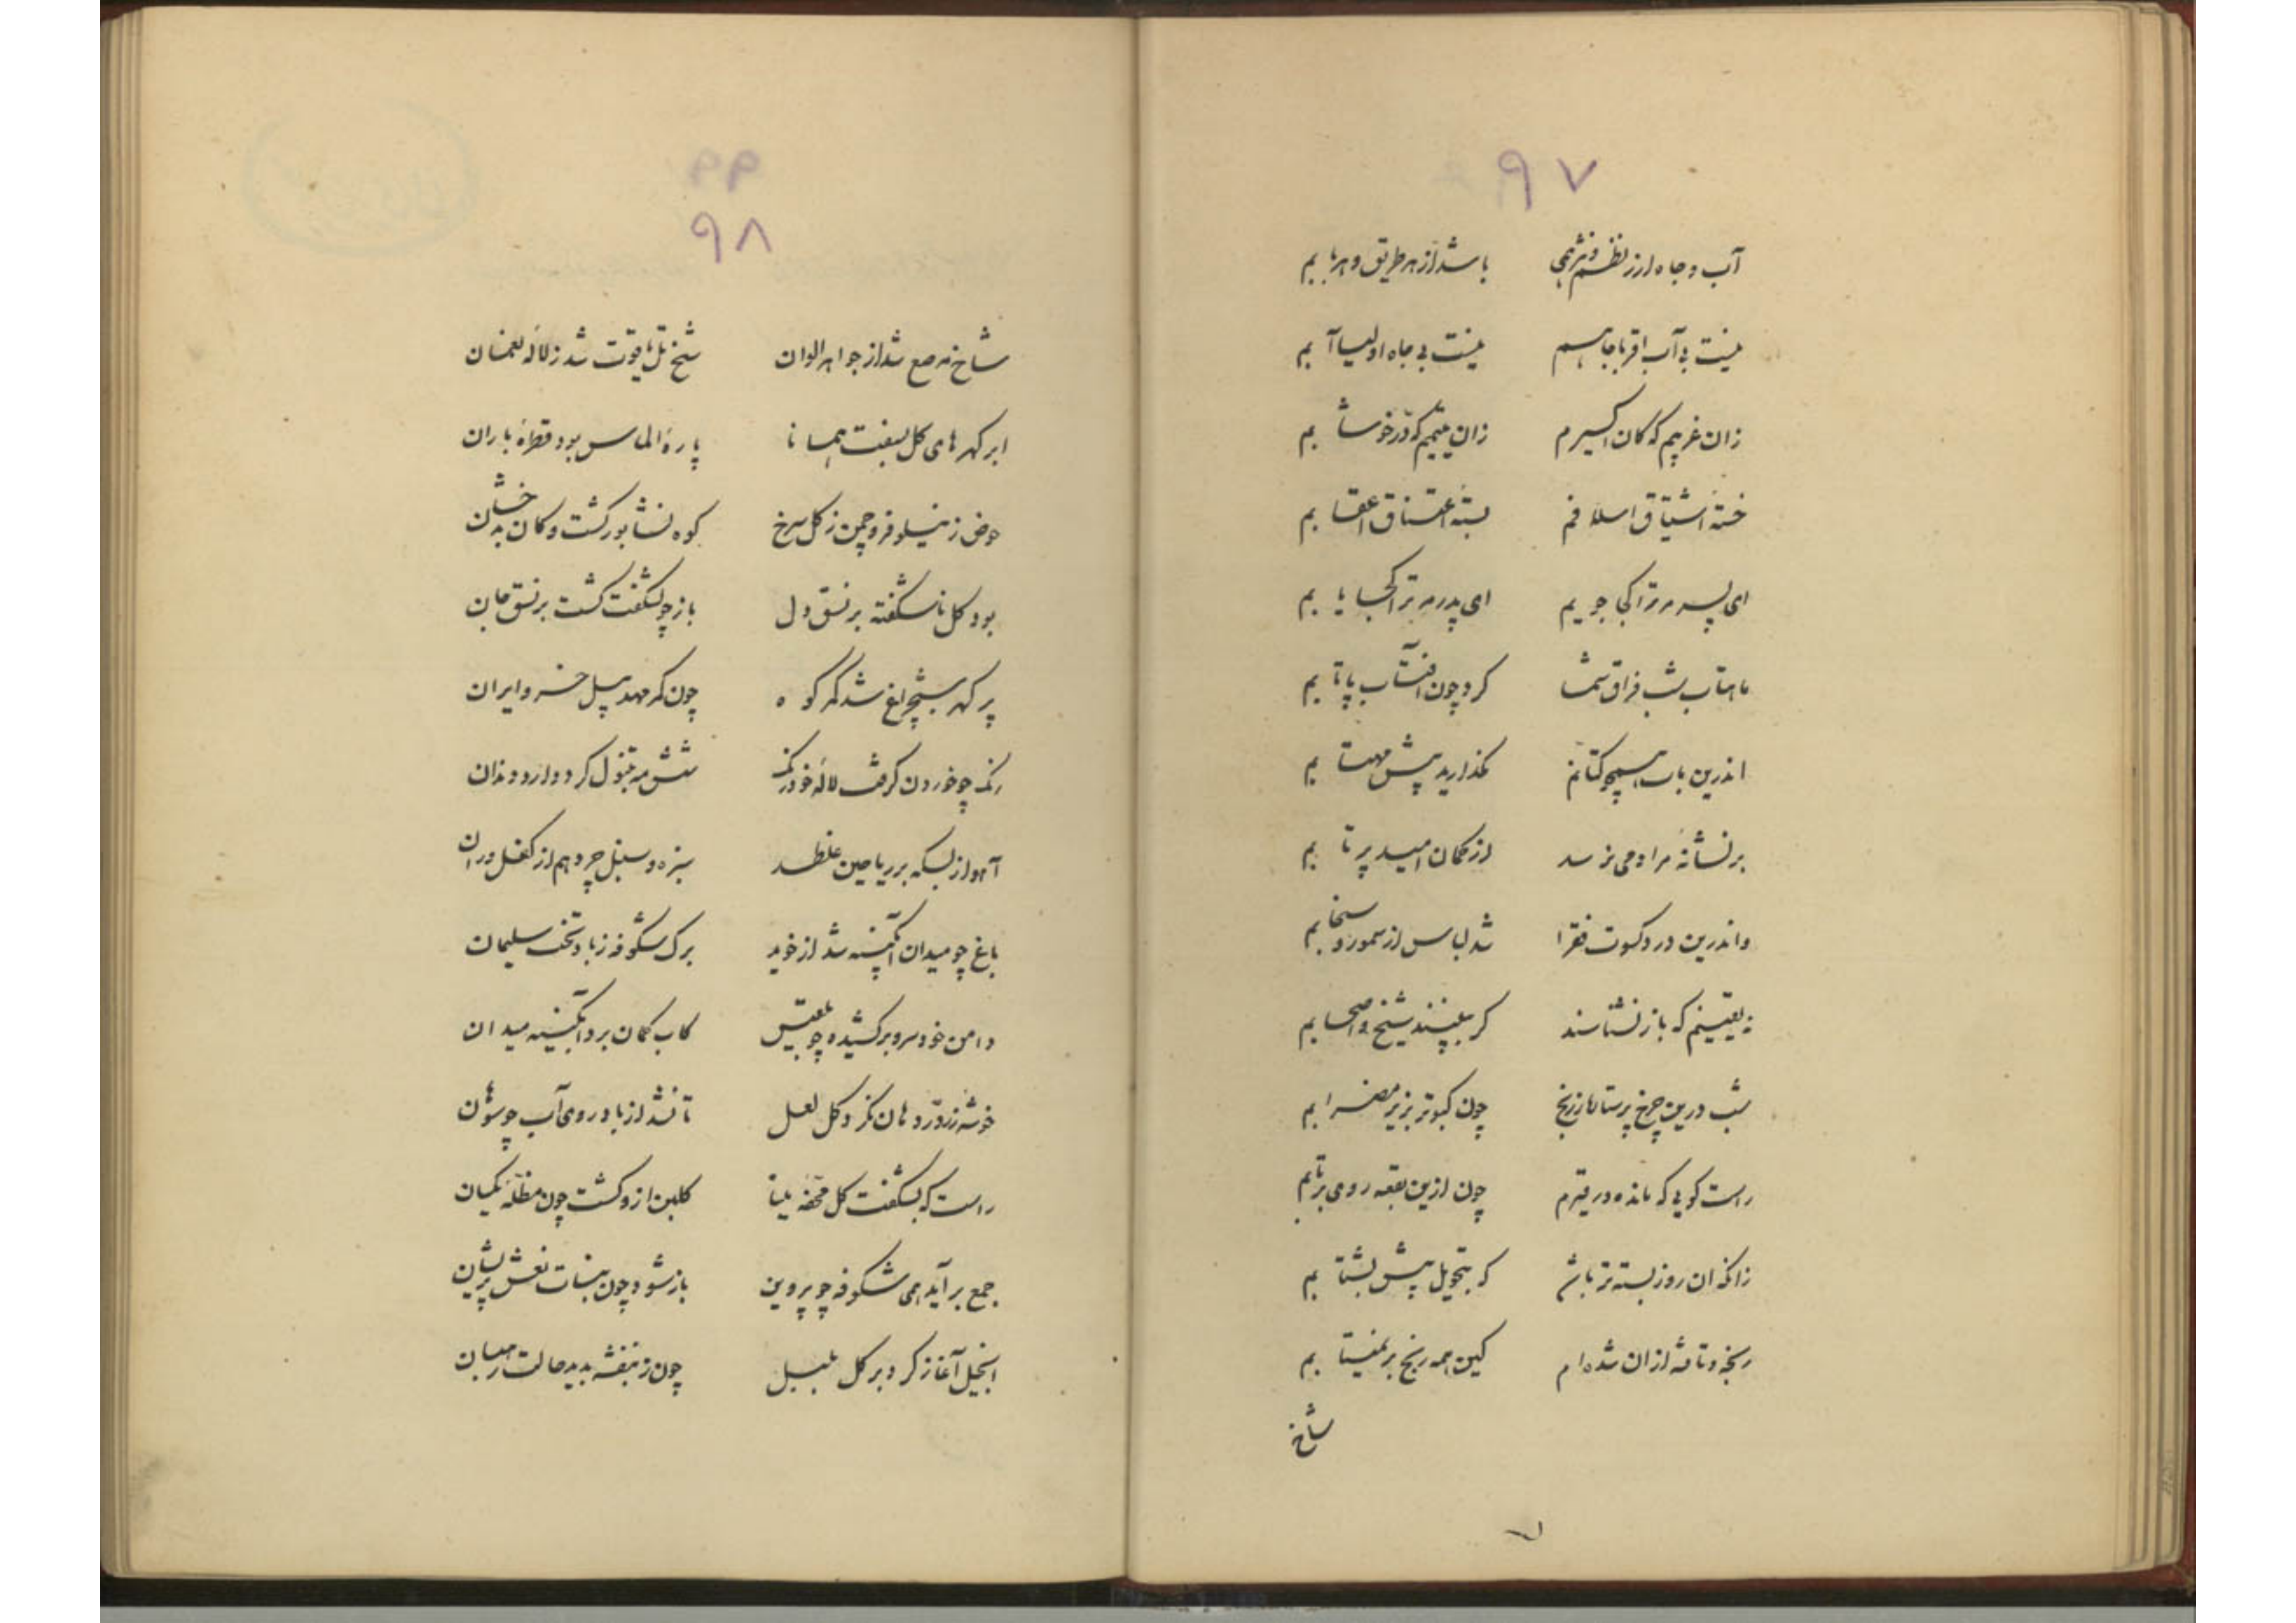 ۹۷
آب و جاه از نظم و نثر همی باشد از هر طریق و هر بابم
نیست بی آب اقربا جاهم نیست بی جاه اولیا آبم
زان غریبم که کان اکسیرم زان یتیمم که در خوشابم
خسته اشتیاق اسلافم بسته اعتناق اعقابم
ای پسر مر ترا کجا جویم ای پدر مر ترا کجا یابم
ماهتاب شب فراق شما کرد چون آفتاب پاتابم
اندرین باب هیچو کتانم مگذارید پیش مهتابم
بر نشانه مراد می نرسد از کمان امید پرتابم
واندرین درد کسوت فقرا شد لباس از سمور و سنجابم
به یقینم که باز نشناسند کر ببینند شیخ و اصحابم
شب درین چرخ پرستاره ز رنج چون کبوتر بزیر مضرابم
راست کویی که مانده در قیرم چون ازین بقعه روی برتابم
زانکه ان روز بسته تر باشم که بتحویل پیش بشتابم
رنجه و تافته ازان شده ام کین همه رنج بر نمیتابم
شاخ
۹۸
شاخ مرصع شد از جواهر الوان شخ تل یاقوت شد ز لاله نعمان
ابر کهرهای کل بسفت همانا پاره الماس بود قطره باران
حوض ز نیلوفر و چمن ز کل سرخ کوه نشابور کشت و کان بدخشان
بود کل ناشکفته بر نسق دل باز چو بشکفت کشت بر نسق جان
پر کهر شبچراغ شد کمر کوه چون کمر مهد پیل خسرو ایران
رنک چو خوردن کرفت لاله خودرنک شش مه تنبول کرد دارد دندان
آهو از بسکه بر ریاحین غلطد سبزه و سنبل چرد هم از کفل و ران
باغ چو میدان آبکینه شد از خوید برک شکوفه ز باد تخت سلیمان
دامن خود سرو برکشیده چو بلقیس کاب کمان برد آبکینه میدان
خوشه زر در دهان نکرد کل لعل تا نشد از باد روی آب چو سوهان
راست که بشکفت کل محفه بلبا کلبن ازو کشت چون مظله یکسان
جمع برآید همی شکوفه چو پروین باز شود چون بنات نعش پریشان
انجیل آغاز کرد بر کل بلبل چون ز بنفشه بدید حالت رهبان